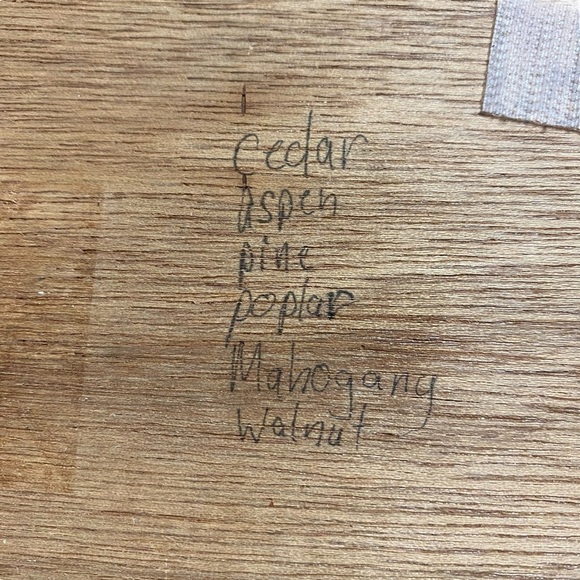 cedar
Aspen
pine
poplar
Mahogany
walnut